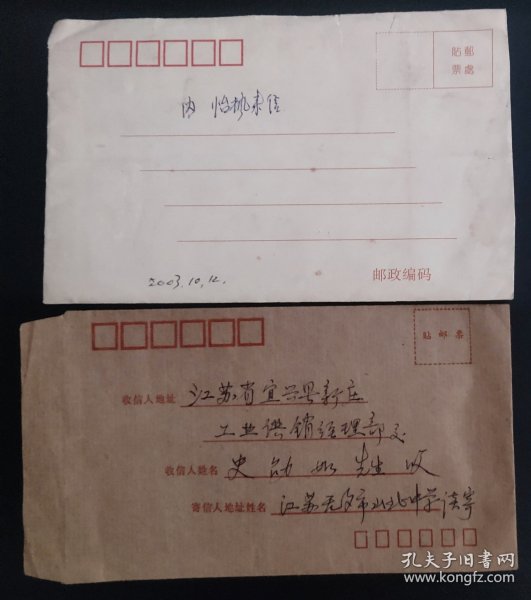 貼郵
票處
内
2003.10.12.
邮政编码
贴邮票
收信人地址 江苏省宜兴县新庄
工业供销经理部交
收信人姓名 史 如 先生 收
寄信人地址姓名 江苏无锡市山北中学
孔夫子旧书网
www.kongfz.com